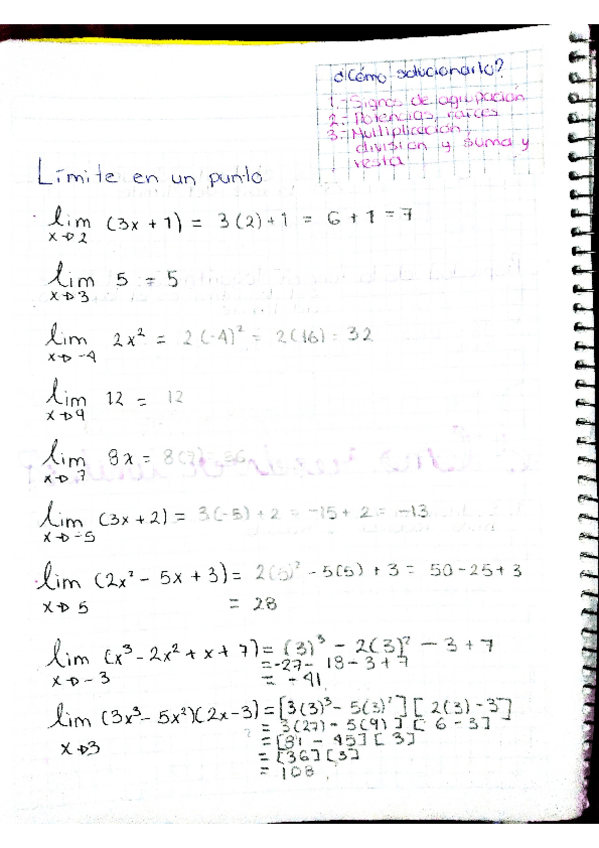 ¿Cómo solucionarlo?
1.- Signos de agrupación
2.- Potencias, raíces
3.- Multiplicación,
división y suma y
resta
Límite en un punto
lim (3x + 1) = 3(2)+1 = 6 + 1 = 7
x→2
lim 5 = 5
x→3
lim 2x² = 2(-4)² = 2(16) = 32
x→-4
lim 12 = 12
x→9
lim 8x = 8(7) = 56
x→7
lim (3x + 2) = 3(-5) + 2 = -15 + 2 = -13
x→-5
lim (2x² - 5x + 3) = 2(5)² - 5(5) + 3 = 50 - 25 + 3
x→5 = 28
lim (x³ - 2x² + x + 7) = (3)³ - 2(3)² - 3 + 7
= -27 - 18 - 3 + 7
x→-3 = -41
lim (3x³ - 5x²)(2x - 3) = [3(3)³ - 5(3)²] [2(3) - 3]
= 3(27) - 5(9)] [6 - 3]
x→3 = [81 - 45] [3]
= [36] [3]
= 108